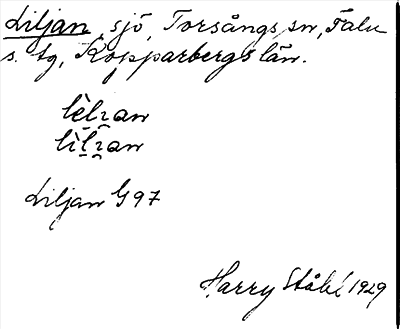 Liljan, sjö, Torsångs sn, Falu
s. tg, Kopparbergs län.
lèlɪ̯an
lìlɪ̯an
Liljan G97
Harry Ståhl 1929